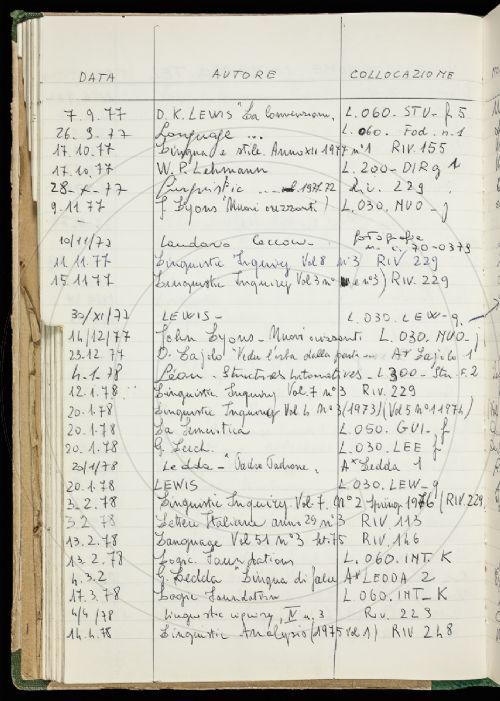 DATA AUTORE COLLOCAZIONE
7.9.77 D.K. LEWIS "La Convenzione, L.060. STU- f. 5
26.9.77 Language ... L.060. Fod. n.1
17.10.77 Lingua e stile. Anno XII 1977 n°1 RIV. 155
17.10.77 W.P. Lehmann L.200-DIR g 1
28-X-77 Linguistic ... 1971.72 Riv. 229
9.11.77 J. Lyons "Nuovi orizzonti) L.030. NUO-j
10/11/77 fotografia
70-0379
11.11.77 Linguistic Inquiry Vol 8 n°3 RIV 229
15.11.77 Linguistic Inquiry Vol 3 n° e n°3) RIV. 229
30/XI/77 LEWIS- L.030. LEW-g.
14/12/77 John Lyons - Nuovi orizzonti L.030. NUO-j
23.12.77 D. Lajolo "Veder l'erba dalla parte - A* Lajolo 1
4-1-78 Léon. Structures Intonatives - L300- Stu. F.2
12.1.78 Linguistic Inquiry Vol. 7 n°3 RIV. 229
20.1.78 Linguistic Inquiry Vol 4 N°3 (1973) (Vol 5 n°1 1974)
20.1.78 La Semiotica L.050. GUI- f
20.1.78 G. Leech. L.030. LEE f
20/1/78 Ledda - "Padre Padrone, A* Ledda 1
20.1.78 LEWIS L.030. LEW-g
3.2.78 Linguistic Inquiry Vol. 7. N°2 Spring 1976 (RIV. 229
3.2.78 Lettere Italiane anno 29 n°3 RIV 113
13.2.78 Language Vol 51 n°3 Set. 75 RIV. 146
13.2.78 Logic Foundations L.060. INT. K
4.3.2 G. Ledda "Lingua di falce A* LEDDA 2
17.3.78 Logic Foundation L.060. INT_K
4/4/78 Linguistic iquiry, IV n.3 Riv. 223
14.4.78 Linguistic Analysis (1975 Vol 1) RIV 248